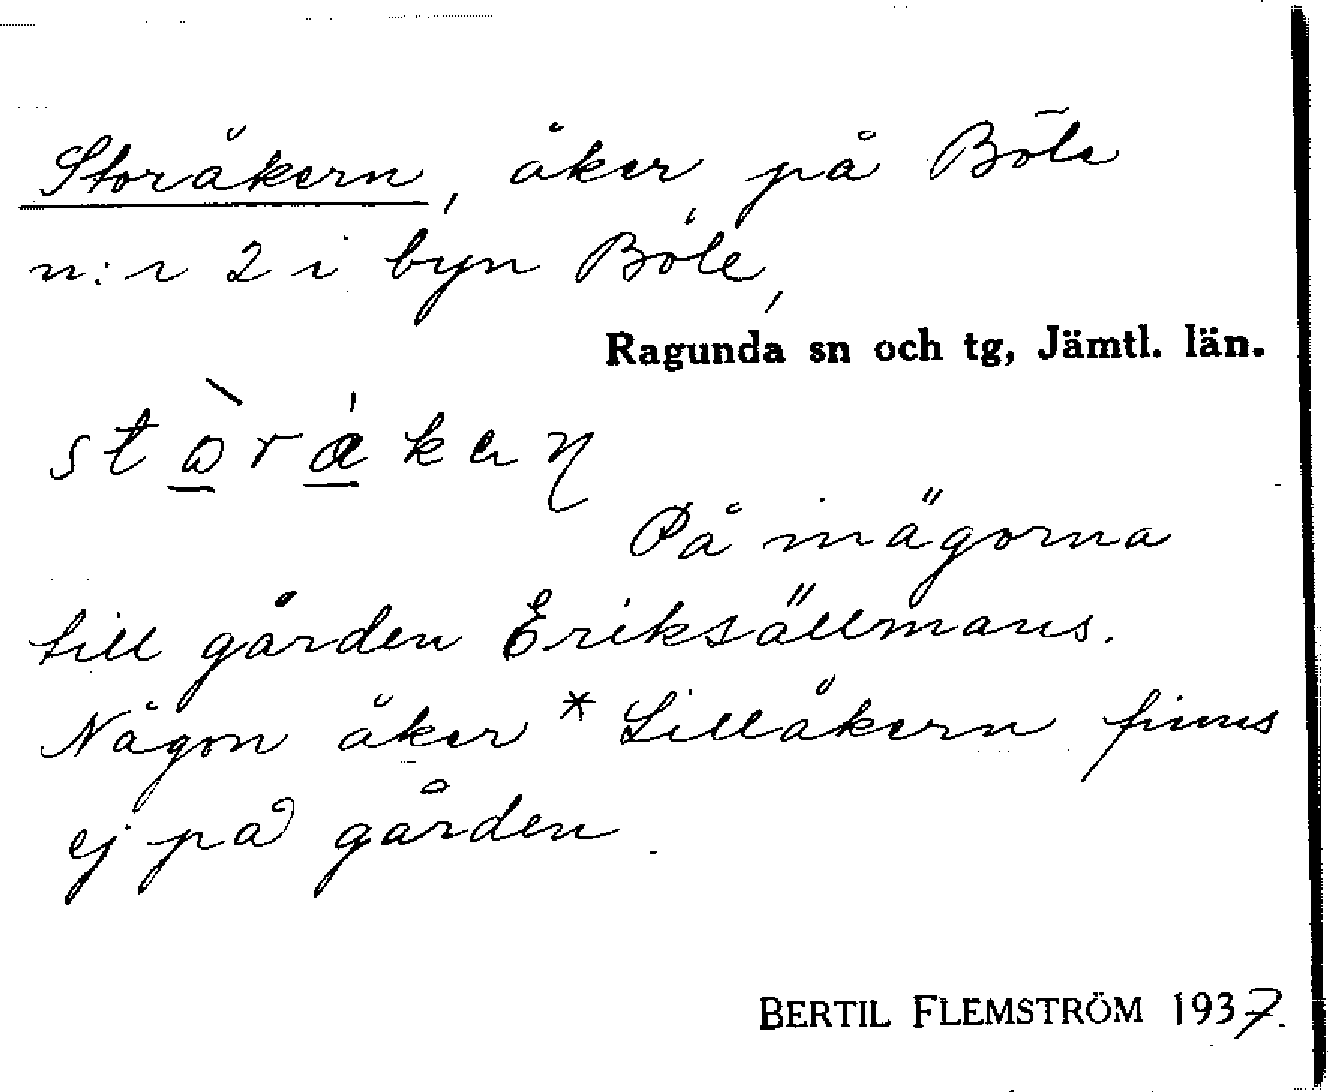 Storåkern, åker på Böle
n:r 2 i byn Böle,
Ragunda sn och tg, Jämtl. län.
På inägorna
till gården Eriksällmans.
Någon åker *Lillåkern finns
ej på gården.
BERTIL FLEMSTRÖM 1937.